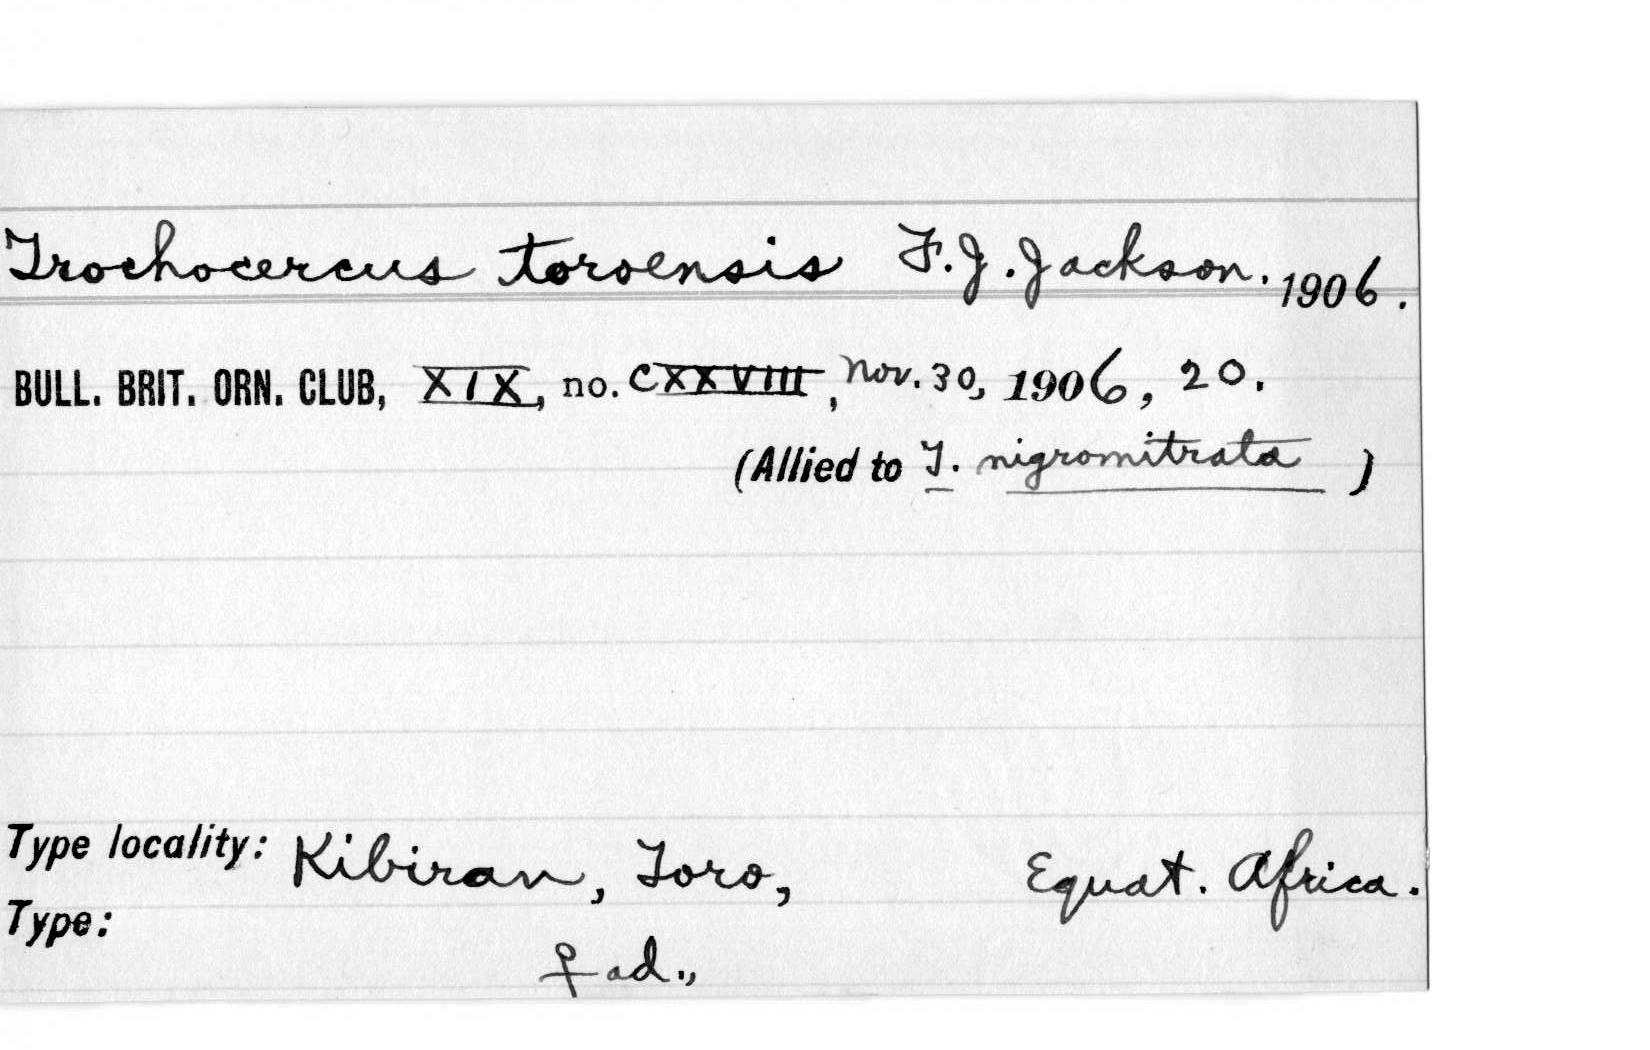 Trochocercus toroensis F.J. Jackson. 1906.
BULL. BRIT. ORN. CLUB, XIX, no. CXXVIII, Nov. 30, 1906, 20.
(Allied to T. nigromitrata )
Type locality: Kibiran, Toro, Equat. Africa.
Type:
♀ ad.,